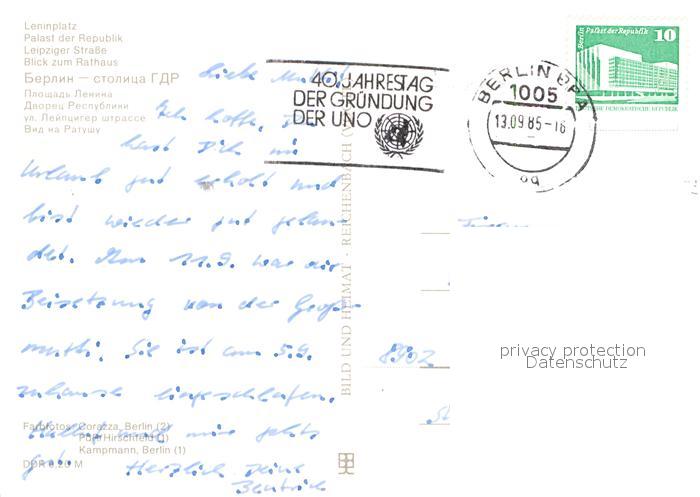 Leninplatz
Palast der Republik
Leipziger Straße
Blick zum Rathaus
Берлин — столица ГДР
Площадь Ленина
Дворец Республики
ул. Лейпцигер штрассе
Вид на Ратушу
40. JAHRESTAG
DER GRÜNDUNG
DER UNO
BERLIN BPA
1005
13.09.85-16
Berlin Palast der Republik
10
DEMOKRATISCHE REPUBLIK
Liebe
Ich hoffe, Du
hast Dich im
Urlaub gut erholt und
bist wieder gut gelan-
det. Am 11.9. war die
Beisetzung von der Groß-
mutti. Sie ist am 5.9.
zuhause eingeschlafen.
mir gehts
gut. Herzlich Deine
BILD UND HEIMAT · REICHENBACH (V
8902
privacy protection
Datenschutz
Farbfotos: Corazza, Berlin (2)
PGH/Hirschfeld (1)
Kampmann, Berlin (1)
DDR 0,20 M